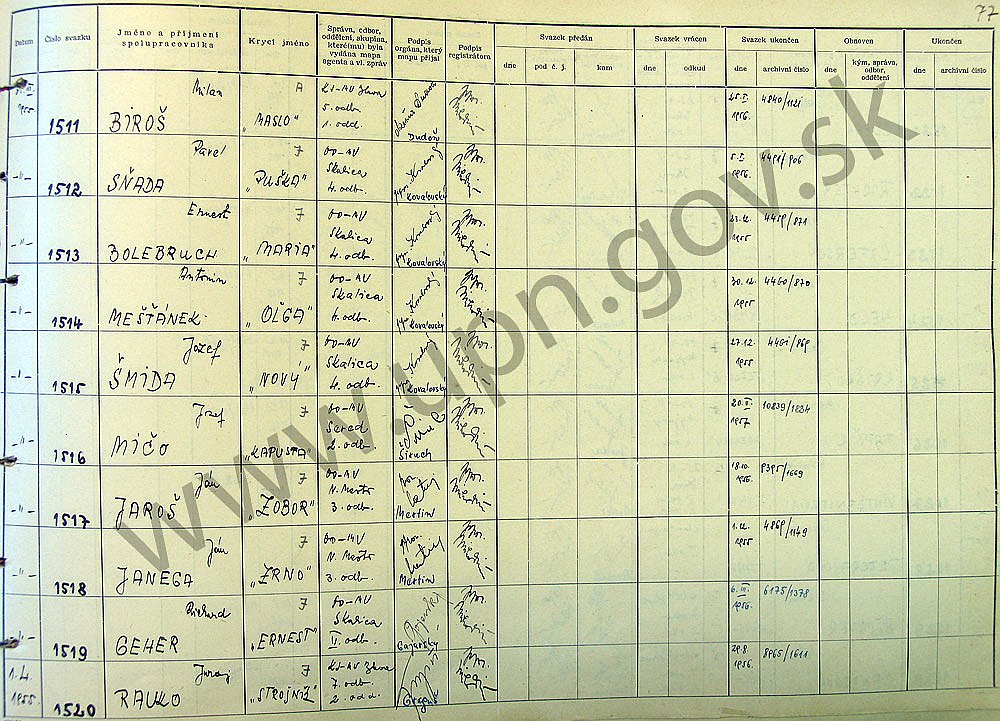 77
Datum
Číslo svazku
Jméno a příjmení
spolupracovníka
Krycí jméno
Správa, odbor,
oddělení, skupina,
kterému) byla
vydána mapa
agenta a vl. zpráv
Podpis
orgána, který
mapu přijal
Podpis
registrátora
Svazek předán
dne
pod č. j.
kam
Svazek vrácen
dne
odkud
Svazek ukončen
dne
archivní číslo
Obnoven
dne
kým, správa,
odbor,
oddělení
Ukončen
dne
archivní číslo
1955
1511
Milan
BIROŠ
A
"MASLO"
5. odb.
1. odd.
Dudáš
25.I.
1956.
4840/1121
-"-
1512
Pavel
SŇADA
7
"PUŠKA"
OO-AV
Skalica
4. odb.
Kovalovský
5.I.
1956.
-"-
1513
Ernest
BOLEBRUCH
7
"MARIA"
OO-AV
Skalica
4. odb.
Kovalovský
1955
4459/871
-"-
1514
Antonin
MEŠŤÁNEK
7
"OĽGA"
OO-AV
Skalica
4. odb.
Kovalovský
30.12.
1955
4460/870
-"-
1515
Jozef
ŠMIDA
7
"NOVÝ"
OO-AV
Skalica
4. odb.
Kovalovský
27.12.
1955
4461/869
-"-
1516
Jozef
MIČO
7
"KAPUSTA"
OO-AV
Sereď
2. odb.
Siruch
20.II.
1957
10839/1834
-"-
1517
Ján
JAROŠ
7
"ZOBOR"
OO-AV
N. Mesto
3. odb.
Martiny
18.10.
1956.
9395/1669
-"-
1518
Ján
JANEGA
7
"ZRNO"
OO-AV
N. Mesto
3. odb.
Martiny
1.12.
1955
4869/1149
-"-
1519
Richard
GEHER
7
"ERNEST"
OO-AV
Skalica
II. odb.
6.III.
1956.
6175/1378
1.4.
1955.
1520
Juraj
RAUKO
7
"STROJNÍK"
7. odb.
2. odd.
29.8.
1956.
8965/1611
www.upn.gov.sk